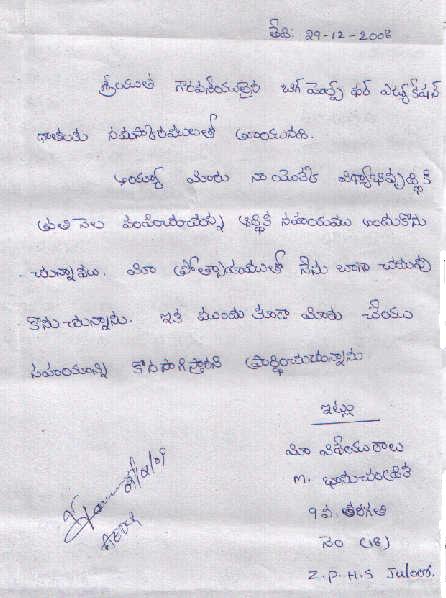 తేది: 29-12-2008
శ్రీయుత గౌరవనీయులైన బిగ్ హెల్ప్ ఫర్ ఎడ్యుకేషన్
గారికి నమస్కారములతో
అయ్యా మీరు నా యొక్క విద్యాభివృద్ధికి
ప్రతి నెల పంపించుచున్న ఆర్థిక సహాయము అందుకొను
చున్నాను. మీ ప్రోత్సాహముతో నేను బాగా చదువు
కొనుచున్నాను. ఇక ముందు కూడా మీరు చేయు
సహాయాన్ని కొనసాగిస్తారని ప్రార్థించుచున్నాను
ఇట్లు
మీ విధేయురాలు
M.
9వ తరగతి
నెం (18)
Z.P.H.S